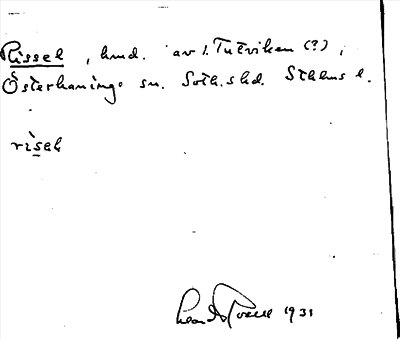 Rissel, hmd. av 1. Tutviken (?),
Österhaninge sn. Soth. shd. Sthlms l.
risel
1931